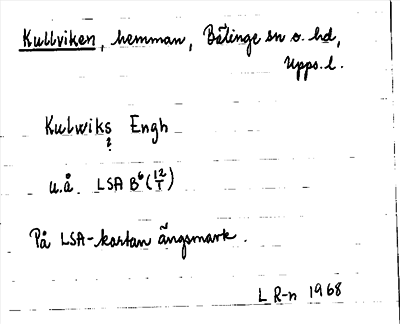 Kullviken, hemman, Bälinge sn o. hd,
Upps. l.
Kulwiks Engh
?
u.å. LSA B⁶(12/1)
På LSA-kartan ängsmark.
L R-n 1968